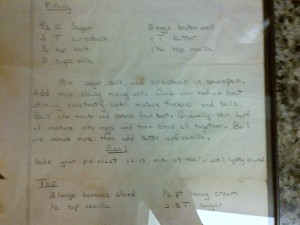 Filling
2/3 c Sugar 3 eggs beaten well
3 T cornstarch 1 T butter
1/2 tsp salt 1 1/2 tsp vanilla
3 cups milk
Mix sugar, salt, and cornstarch in saucepan.
Add milk slowly mixing well. Cook over medium heat
stirring constantly until mixture thickens and boils.
Boil one minute and remove from heat. Gradually stir half
of mixture into eggs and then blend all together. Boil
one minute more then add butter and vanilla.
Cool
Bake your pie crust 12-15 min at until lightly browned.
Top
3 large bananas sliced 1/2 pt heavy cream
1/2 tsp vanilla 2-3 T sugar